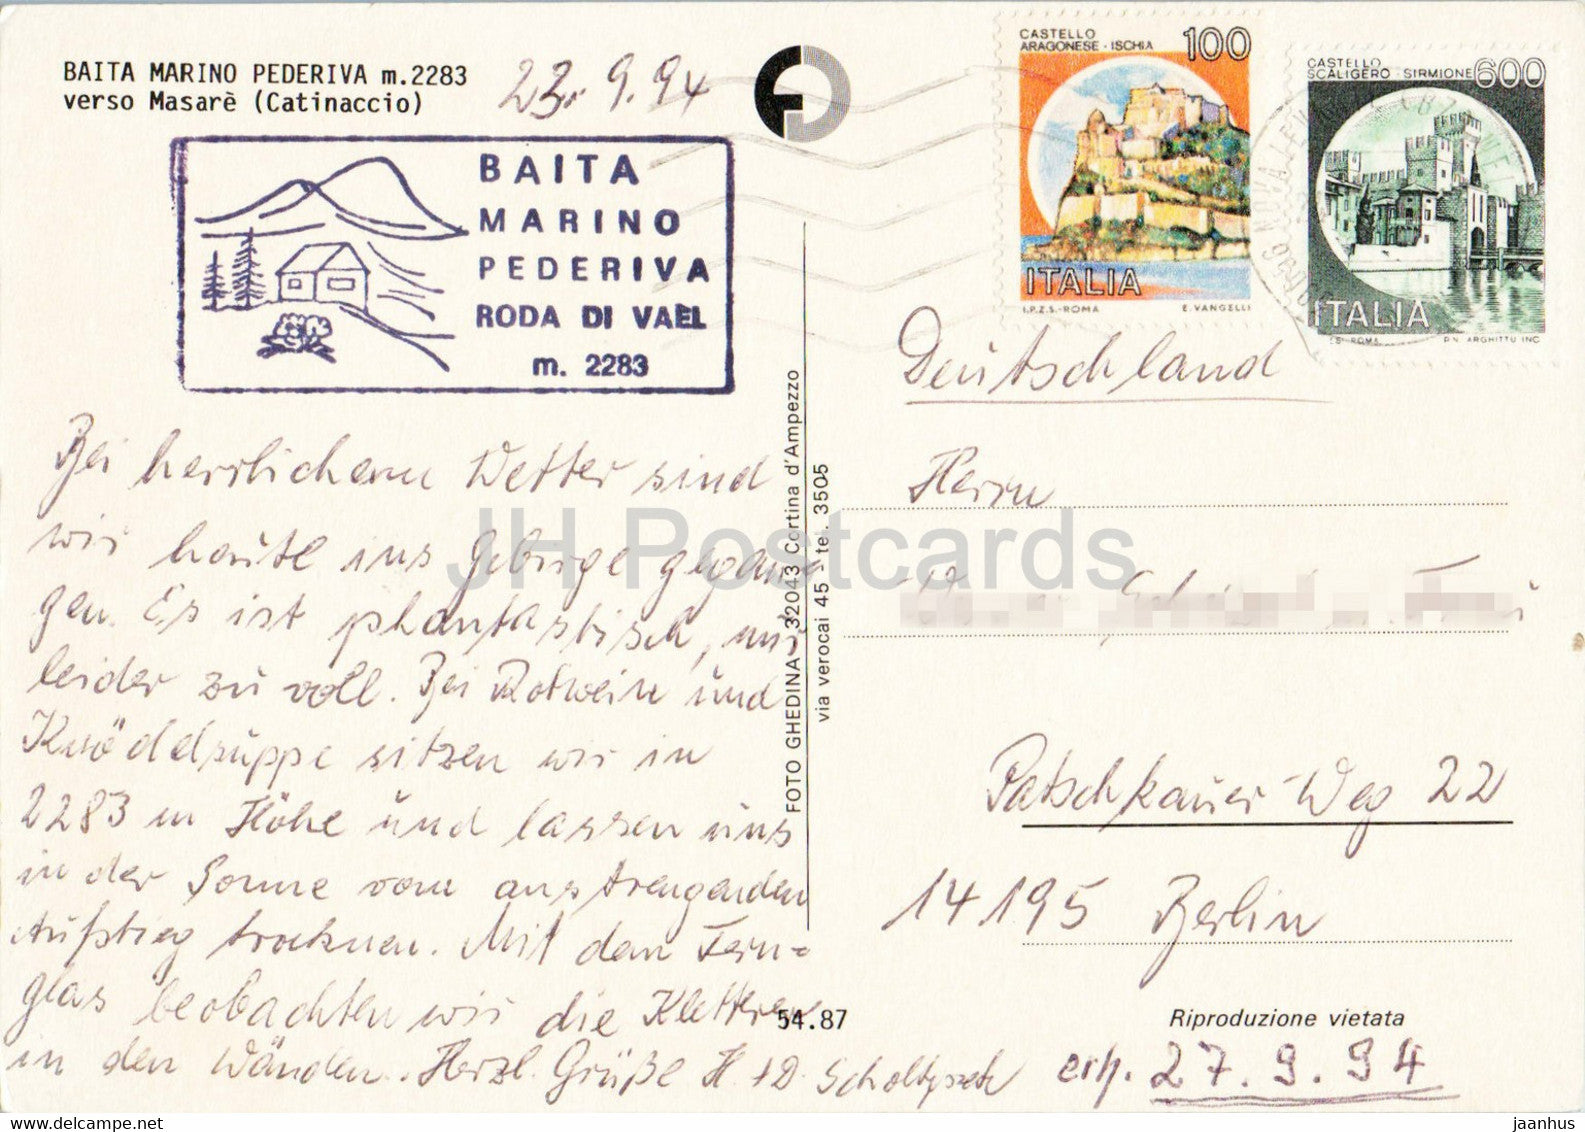 BAITA MARINO PEDERIVA m.2283
verso Masarè (Catinaccio)
23. 9. 94
BAITA
MARINO
PEDERIVA
RODA DI VAEL
m. 2283
Bei herrlichem Wetter sind
wir heute ins Gebirge gegan-
gen. Es ist phantastisch, nur
leider zu voll. Bei Rotwein und
Knöddelsuppe sitzen wir in
2283 m Höhe und lassen uns
in der Sonne vom anstrengenden
Aufstieg trocknen. Mit dem Fern=
glas beobachten wir die Kletterer
in den Wänden. Herzl. Grüße H. + D. Scholtyssek
FOTO GHEDINA 32043 Cortina d'Ampezzo
via verocai 45 - te. 3505
54.87
CASTELLO
ARAGONESE - ISCHIA 100
ITALIA
I.P.Z.S.-ROMA E. VANGELLI
CASTELLO
SCALIGERO - SIRMIONE 600
ITALIA
ROMA P.N. ARGHITTU INC
Deutschland
Herrn
Patschkauer Weg 22
14195 Berlin
Riproduzione vietata
erh. 27. 9. 94
JH Postcards
jaanhus